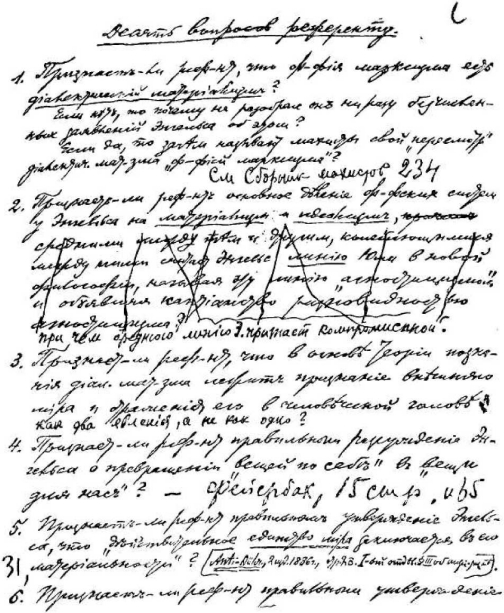 Десять вопросов референту.
1. Признаетъ-ли реф-нтъ, что ф-фія марксизма есть
діалектическій матеріализмъ?
Если нѣтъ, то почему не разобралъ онъ ни разу безчислен-
ныхъ заявленій Энгельса объ этомъ?
Если да, то зачѣмъ называютъ махисты свой „пересмотръ“
діалектич. мат-зма „ф-фіей марксизма“?
См Сборник махистов, 234
2. Признаетъ-ли реф-нтъ основное дѣленіе ф-фскихъ системъ
у Энгельса на матеріализмъ и идеализмъ,
средними между тѣмъ и другимъ, колеблющимися
между ними считаетъ Энгельсъ линію Юма в новой
философіи, называя эту линію „агностицизмомъ“
и объявляя кантіанство разновидностью
агностицизма?
при чем средного линію Э. признает компромисной".
3. Признаетъ-ли реф-нтъ, что в основѣ теоріи позна-
нія діал. мат-зма лежитъ признаніе внѣшняго
міра и отраженія его в человѣческой головѣ
как два явленія, а не как одно?
4. Признаетъ-ли реф-нтъ правильнымъ разсужденіе Эн-
гельса о превращеніи „вещей по себѣ“ въ „вещи
для насъ“? — Фейербах, 15 стр. и 65
5. Признаетъ-ли реф-нтъ правильнымъ утвержденіе Энгель-
са, что „дѣйствительное единство міра заключается въ его
31, матеріальности“? (Anti-Dühr, 2 изд. 1886 г.,
6. Признаетъ-ли реф-нтъ правильнымъ утвержденіе